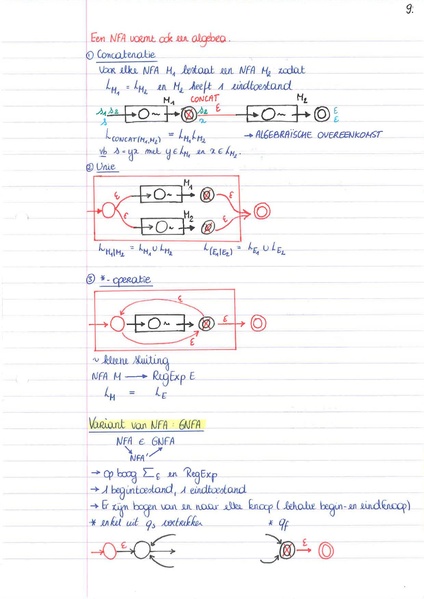 9.
Een NFA vormt ook een algebra.
① Concatenatie
Voor elke NFA M₁ bestaat een NFA M₂ zodat
L_M₁ = L_M₂ en M₂ heeft 1 eindtoestand
M₁ CONCAT M₂
ε
L_CONCAT(M₁,M₂) = L_M₁ L_M₂ → ALGEBRAÏSCHE OVEREENKOMST
vb s = yx met y ∈ L_M₁ en x ∈ L_M₂.
② Unie
ε M₁ ε
ε M₂ ε
L_M₁|M₂ = L_M₁ ∪ L_M₂ L_(E₁|E₂) = L_E₁ ∪ L_E₂
③ *-operatie
ε
ε
ε
~ kleene sluiting
NFA M → RegExp E
L_M = L_E
Variant van NFA: GNFA
NFA ∈ GNFA
NFA'
→ op boog Σ_ε en RegExp
→ 1 begintoestand, 1 eindtoestand
→ Er zijn bogen van en naar elke knoop (behalve begin- en eindknoop)
* enkel uit q_s vertrekken * q_f
ε ε